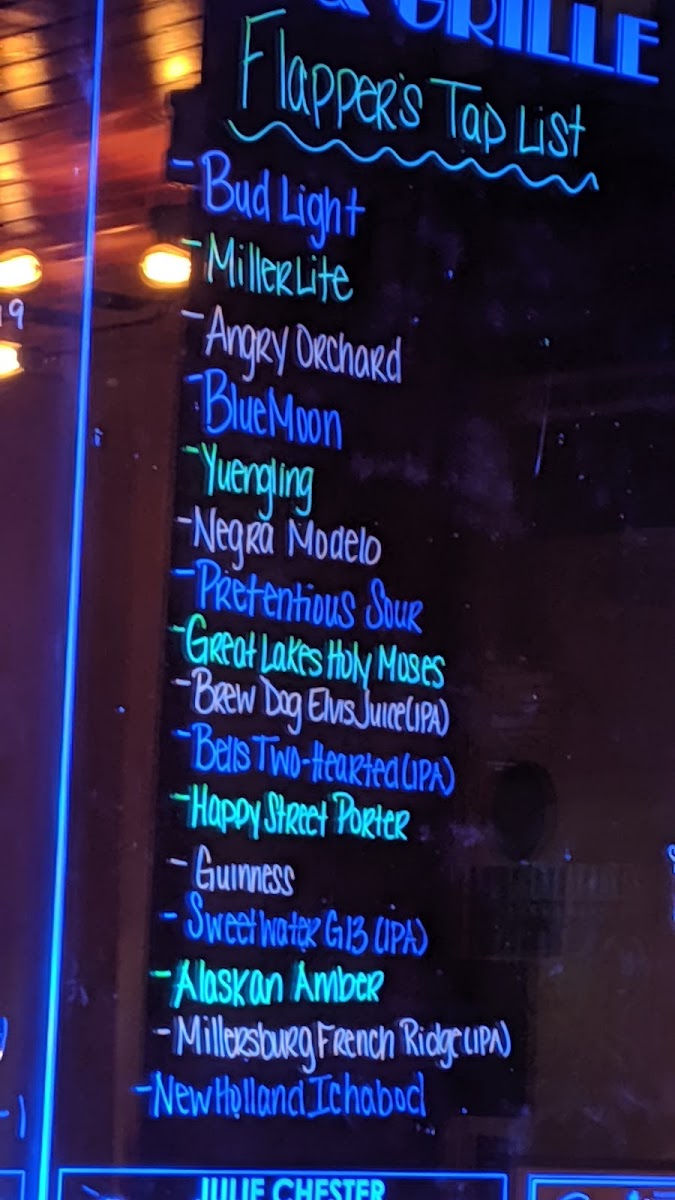 & GRILLE
Flapper's Tap List
- Bud Light
- Miller Lite
- Angry Orchard
- Blue Moon
- Yuengling
- Negra Modelo
- Pretentious Sour
- Great Lakes Holy Moses
- Brew Dog Elvis Juice (IPA)
- Bells Two-Hearted (IPA)
- Happy Street Porter
- Guinness
- Sweetwater G13 (IPA)
- Alaskan Amber
- Millersburg French Ridge (IPA)
- New Holland Ichabod
JULIE CHESTER